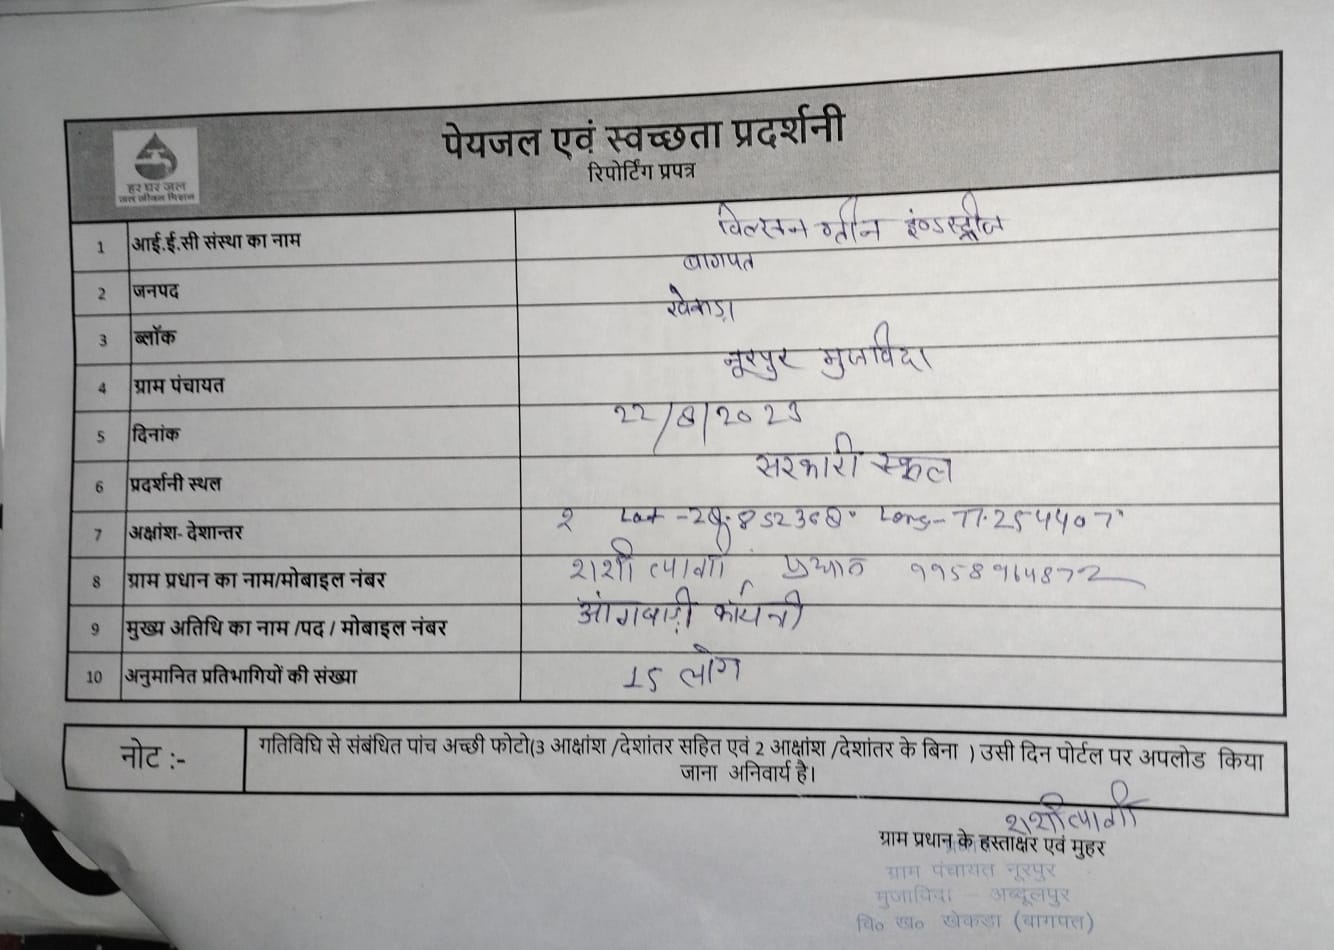 पेयजल एवं स्वच्छता प्रदर्शनी
रिपोर्टिंग प्रपत्र
हर घर जल
जल जीवन मिशन
1 आई.ई.सी संस्था का नाम विल्सन ग्रीन इंण्डस्ट्रीज
2 जनपद बागपत
3 ब्लॉक खेकड़ा
4 ग्राम पंचायत नूरपुर मुजाविदा
5 दिनांक 22/8/2023
6 प्रदर्शनी स्थल सरकारी स्कूल
7 अक्षांश- देशान्तर Lat Long-77.254407°
8 ग्राम प्रधान का नाम/मोबाइल नंबर शशी त्यागी प्रधान
9 मुख्य अतिथि का नाम /पद / मोबाइल नंबर आंगबाड़ी
10 अनुमानित प्रतिभागियों की संख्या 15 लोग
नोट :- गतिविधि से संबंधित पांच अच्छी फोटो(3 आक्षांश /देशांतर सहित एवं 2 आक्षांश /देशांतर के बिना ) उसी दिन पोर्टल पर अपलोड किया
जाना अनिवार्य है।
शशी त्यागी
ग्राम प्रधान के हस्ताक्षर एवं मुहर
ग्राम पंचायत नूरपुर
मुजाविदा - अब्दूलपुर
वि० ख० खेकडा (बागपत)